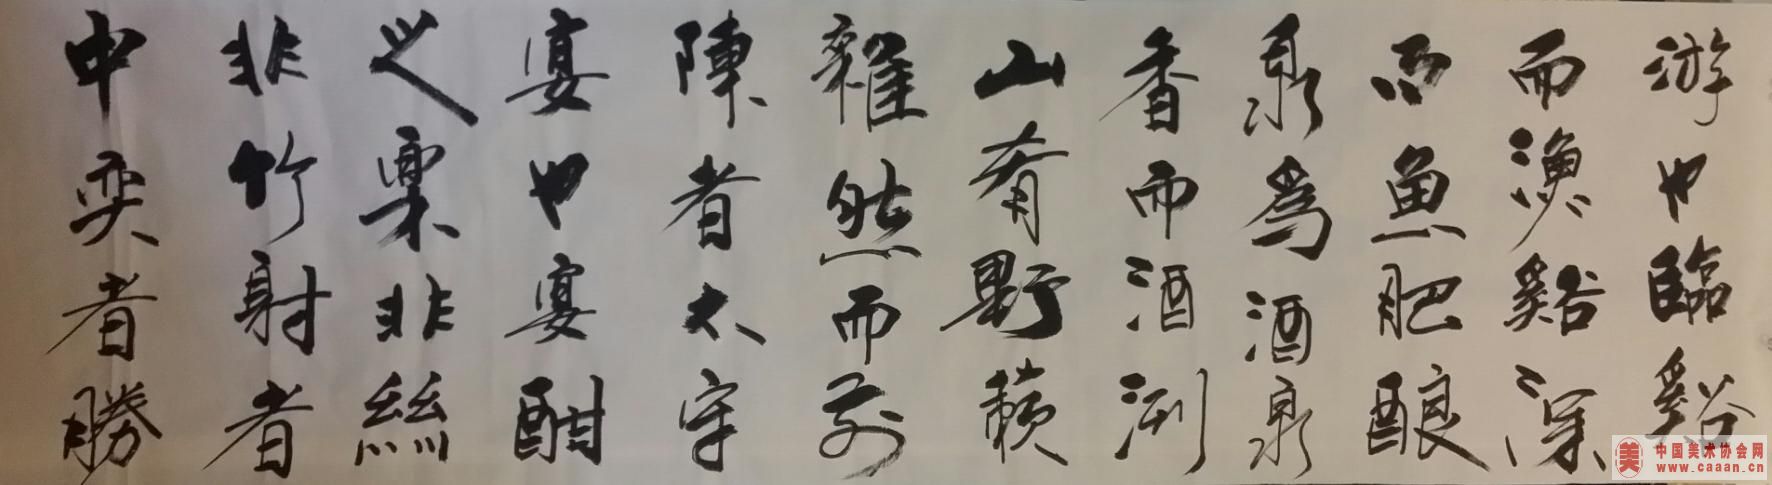 游也臨谿
而漁谿深
而魚肥酿
泉為酒泉
香而酒洌
山肴野蔌
雜然而前
陳者太守
宴也宴酣
之樂非絲
非竹射者
中奕者勝
中国美术协会网
www.caaan.cn